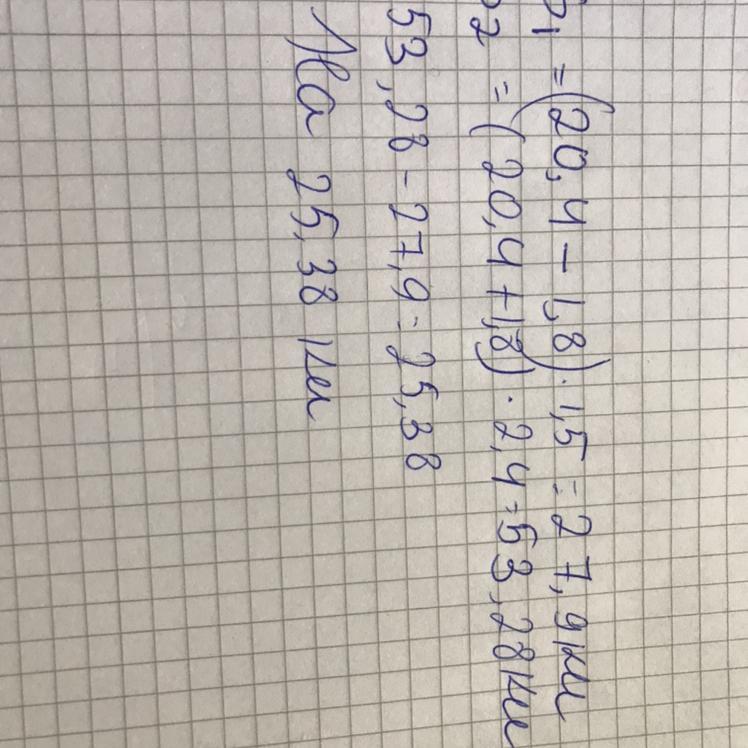 S1 = (20,4 - 1,8) · 1,5 = 27,9 км
S2 = (20,4 + 1,8) · 2,4 = 53,28 км
53,28 - 27,9 = 25,38
На 25,38 км